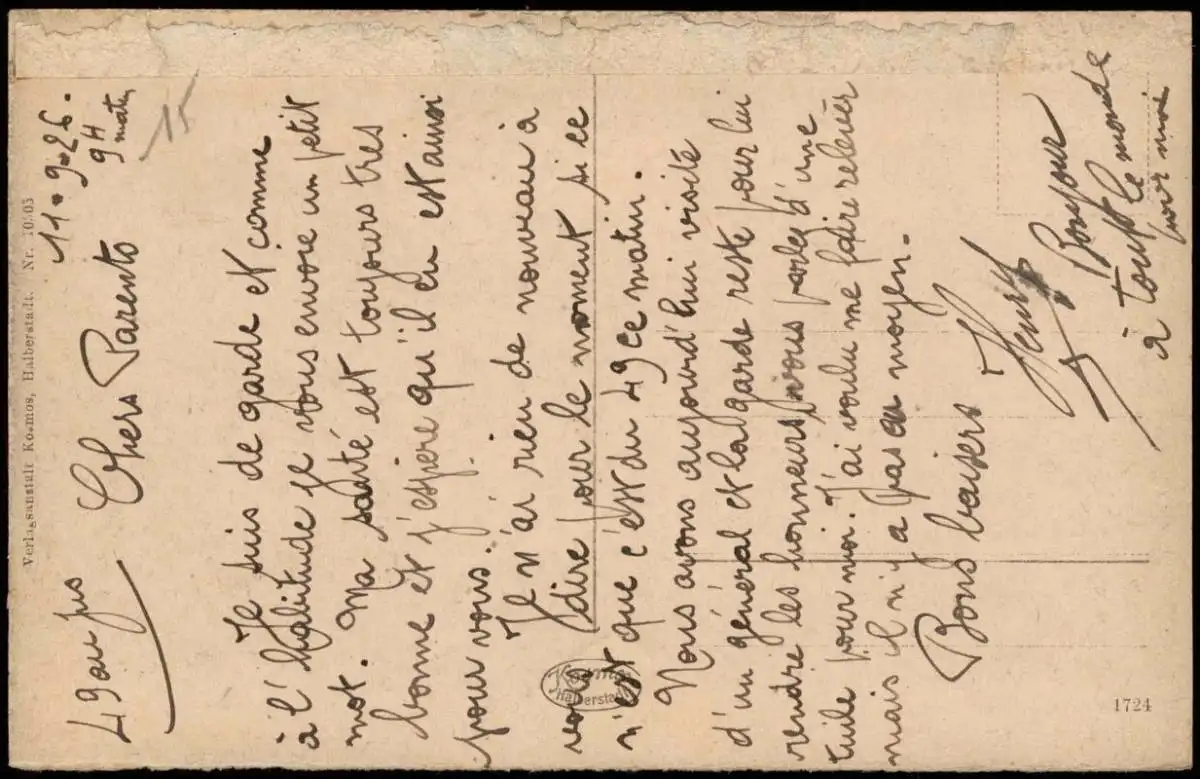 49 au jus
11.9.26.
9H
matin
15
Chers Parents
Je suis de garde et comme
à l'habitude je vous envoie un petit
mot. Ma santé est toujours très
bonne et j'espère qu'il en est ainsi
pour vous.
Je n'ai rien de nouveau à
vous dire pour le moment si ce
n'est que c'est du 49 ce matin.
Nous avons aujourd'hui visité
d'un général et la garde reste pour lui
rendre les honneurs vous parlez d'une
tuile pour moi. J'ai voulu me faire relever
mais il n'y a pas eu moyen.
Bons baisers
Henri
Bonjour
à tout le monde
pour moi
Verlagsanstalt Kosmos, Halberstadt. Nr. 10505
Kosmos
Halberstadt
1724